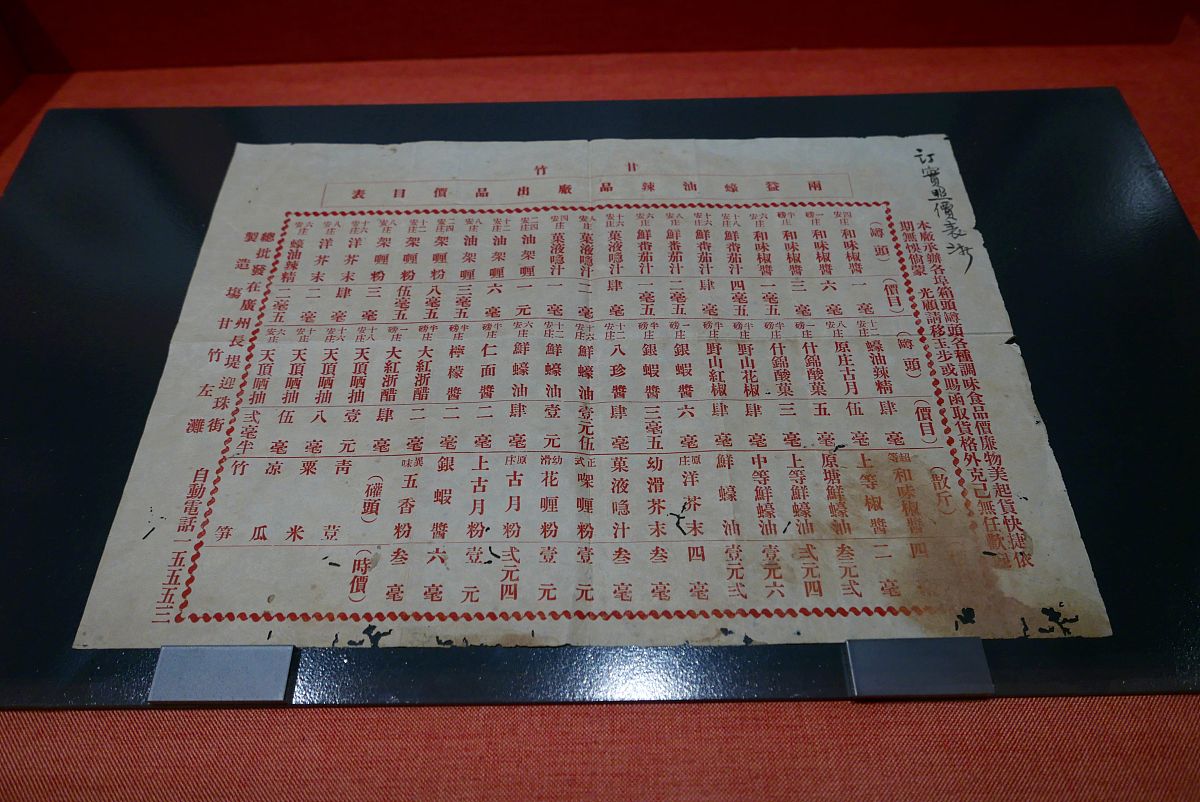 甘竹
兩益蠔油辣品廠出品價目表
訂實照價表
本廠承辦各埠箱頭罇頭各種調味食品價廉物美起貨快捷依
期無悞倘蒙 光顧請移玉步或賜函取貨格外克己無任歡迎
(罇頭) (價目)
四安庄 和味椒醬 一毫
一磅庄 和味椒醬 六毫
和味椒醬 一毫五
鮮番茄汁 四毫五
鮮番茄汁 肆毫
八安庄 鮮番茄汁 二毫五
六安庄 鮮番茄汁 一毫五
十六安庄 菓液隐汁 肆毫
八安庄 菓液隐汁 二毫
四安庄 菓液隐汁 一毫
二四安庄 油架喱 一元
十二安庄 油架喱 六毫
八安庄 油架喱 三毫五
二四安庄 架喱粉 八毫五
十二安庄 架喱粉 伍毫五
八安庄 架喱粉 三毫
十六安庄 洋芥末 肆毫
八安庄 洋芥末 二毫
六安庄 蠔油辣精 一毫五
(罇頭) (價目)
十二安庄 蠔油辣精 肆毫
八安庄 原庄古月 伍毫
一磅庄 什錦酸菓 五毫
半磅庄 什錦酸菓 三毫
半磅庄 野山花椒 肆毫
半磅庄 野山紅椒 肆毫
一磅庄 銀蝦醬 六毫
半磅庄 銀蝦醬 三毫五
十二安庄 八珍醬 肆毫
十六安庄 鮮蠔油 壹元伍
十二安庄 鮮蠔油 壹元
六安庄 鮮蠔油 肆毫
半磅庄 仁面醬 二毫
半磅庄 檸檬醬 二毫
大紅浙醋 二毫
大紅浙醋 肆毫
天頂晒抽 壹元
天頂晒抽 八毫
天頂晒抽 伍毫
天頂晒抽 弍毫半
(散斤)
超等和味椒醬 四毫
上等椒醬 二毫
原塘鮮蠔油 叁元弍
上等鮮蠔油 弍元四
中等鮮蠔油 壹元六
鮮蠔油 壹元弍
原庄洋芥末 四毫
幼滑芥末 叁毫
菓液隐汁 叁毫
正式㗎喱粉 壹元
幼滑花喱粉 壹元
原庄古月粉 弍元四
上古月粉 壹元
銀蝦醬 六毫
異味五香粉 叁毫
(礶頭) (時價)
青荳
粟米
凉瓜
竹笋
總批發在廣州長堤迎珠街
製造塲甘竹左灘
自動電話一五五五三